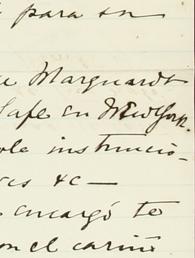 para su
Marquardt
Safe en New York.
ole instruccio-
es &c —
encargó te
on el cariñ